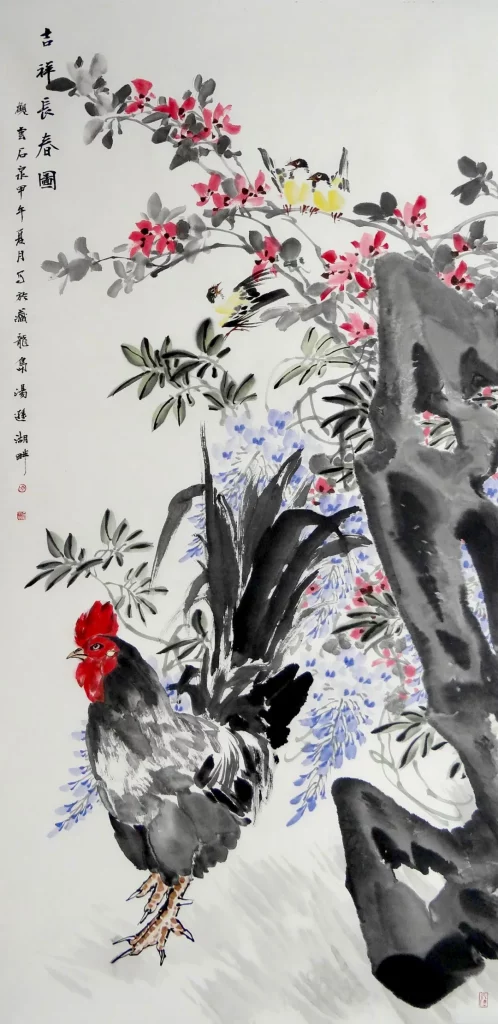 吉祥長春圖
雲石泉甲午夏月写於藏龍島湯遜湖畔